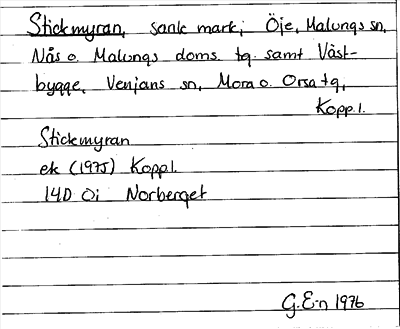 Stickmyran, sank mark; Öje, Malungs sn,
Nås o. Malungs doms. tg. samt Väst-
bygge, Venjans sn, Mora o. Orsa tg,
Kopp.l.
Stickmyran
ek (1975) Kopp.l.
14D 0i Norberget
G.E-n 1976